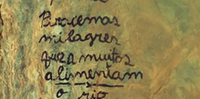 Piracemas
milagres
que a muitos
alimentam
o rio